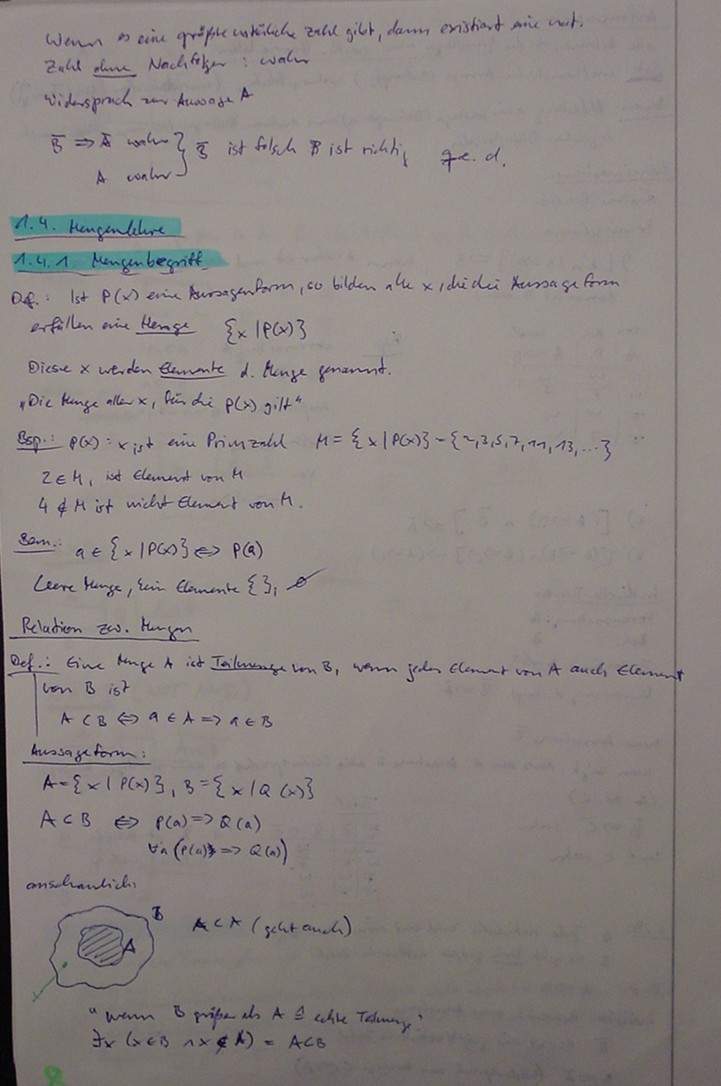 Wenn es eine größte natürliche Zahl gibt, dann existiert eine nat.
Zahl ohne Nachfolger : wahr
Widerspruch zur Aussage A
B̅ ⇒ A̅ wahr } B̅ ist falsch B ist richtig q.e.d.
A wahr
1.4. Mengenlehre
1.4.1. Mengenbegriff
Def.: Ist P(x) eine Aussagenform, so bilden alle x, die die Aussageform
erfüllen eine Menge {x | P(x)}
Diese x werden Elemente d. Menge genannt.
„Die Menge aller x, für die P(x) gilt“
Bsp.: P(x) : x ist eine Primzahl M = {x | P(x)} = {2,3,5,7,11,13,...}
2 ∈ M, ist Element von M
4 ∉ M ist nicht Element von M.
Bem.: a ∈ {x | P(x)} ⇔ P(a)
Leere Menge, kein Elemente { }, ∅
Relation zw. Mengen
Def.: Eine Menge A ist Teilmenge von B, wenn jedes Element von A auch Element
von B ist
A ⊂ B ⇔ a ∈ A ⇒ a ∈ B
Aussageform:
A = {x | P(x)}, B = {x | Q(x)}
A ⊂ B ⇔ P(a) ⇒ Q(a)
∀a (P(a) ⇒ Q(a))
anschaulich:
B
A
A ⊂ A (geht auch)
"wenn B größer als A ≙ echte Teilmenge"
∃x (x ∈ B ∧ x ∉ A) = A ⊂ B
8